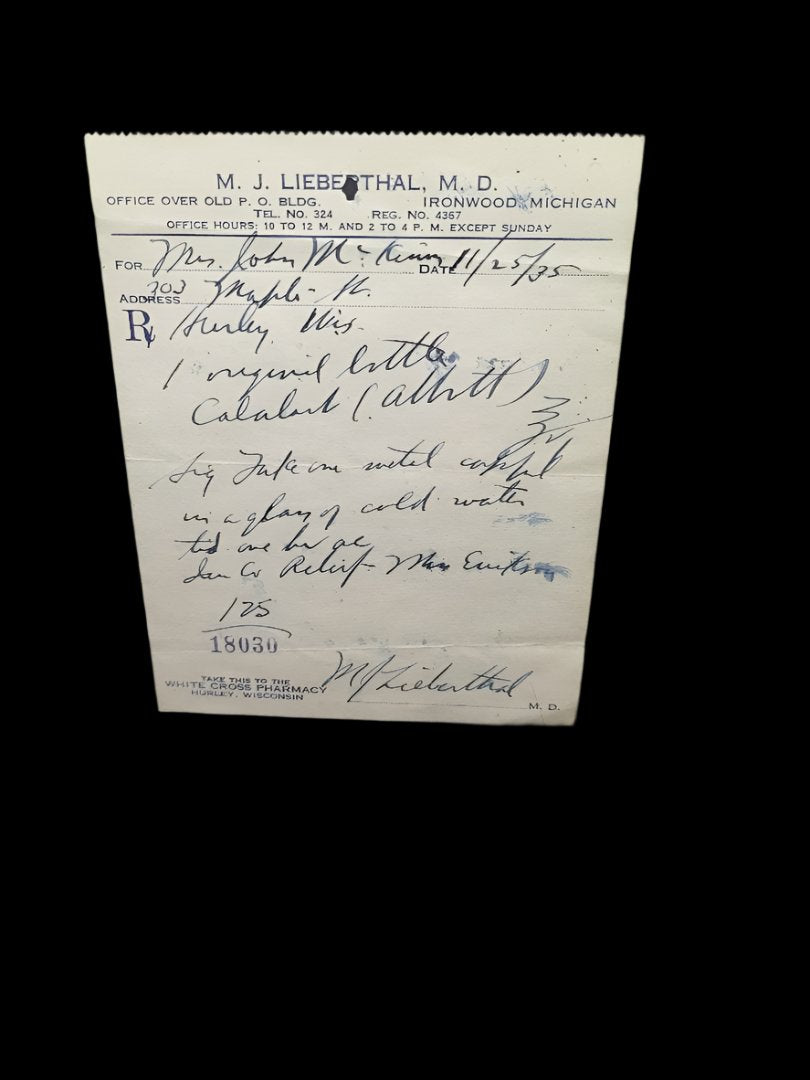 M. J. LIEBERTHAL, M. D.
OFFICE OVER OLD P. O. BLDG. IRONWOOD, MICHIGAN
TEL. NO. 324 REG. NO. 4367
OFFICE HOURS: 10 TO 12 M. AND 2 TO 4 P. M. EXCEPT SUNDAY
FOR Mrs. John DATE 11/25/35
ADDRESS 303 Maple St.
Rx Hurley, Wis.
1 original bottle
(Abbott)
Sig Take one metal capful
in a glass of cold water
tid one hr ac
Relief Miss
125
18030
TAKE THIS TO THE
WHITE CROSS PHARMACY
HURLEY, WISCONSIN
MJ Lieberthal
M. D.